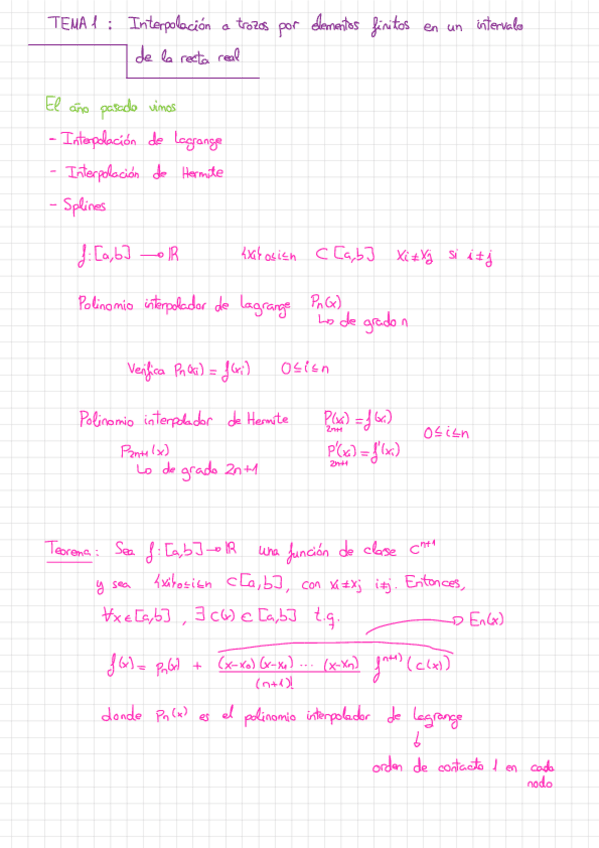 TEMA 1 : Interpolación a trozos por elementos finitos en un intervalo
de la recta real
El año pasado vimos
- Interpolación de Lagrange
- Interpolación de Hermite
- Splines
f: [a,b] → ℝ {xi}0≤i≤n ⊂ [a,b] xi≠xj si i≠j
Polinomio interpolador de Lagrange Pn(x)
↳ de grado n
Verifica Pn(xi) = f(xi) 0≤i≤n
Polinomio interpolador de Hermite P2n+1(xi) = f(xi)
0≤i≤n
P2n+1(x) P'2n+1(xi) = f'(xi)
↳ de grado 2n+1
Teorema: Sea f: [a,b] → ℝ una función de clase C^{n+1}
y sea {xi}0≤i≤n ⊂ [a,b], con xi≠xj i≠j. Entonces,
∀x∈[a,b], ∃ c(x) ⊂ [a,b] t.q. → En(x)
f(x) = pn(x) + (x-x0)(x-x1) ... (x-xn) / (n+1)! f^{n+1)} (c(x))
donde pn(x) es el polinomio interpolador de Lagrange
↓
orden de contacto 1 en cada
nodo